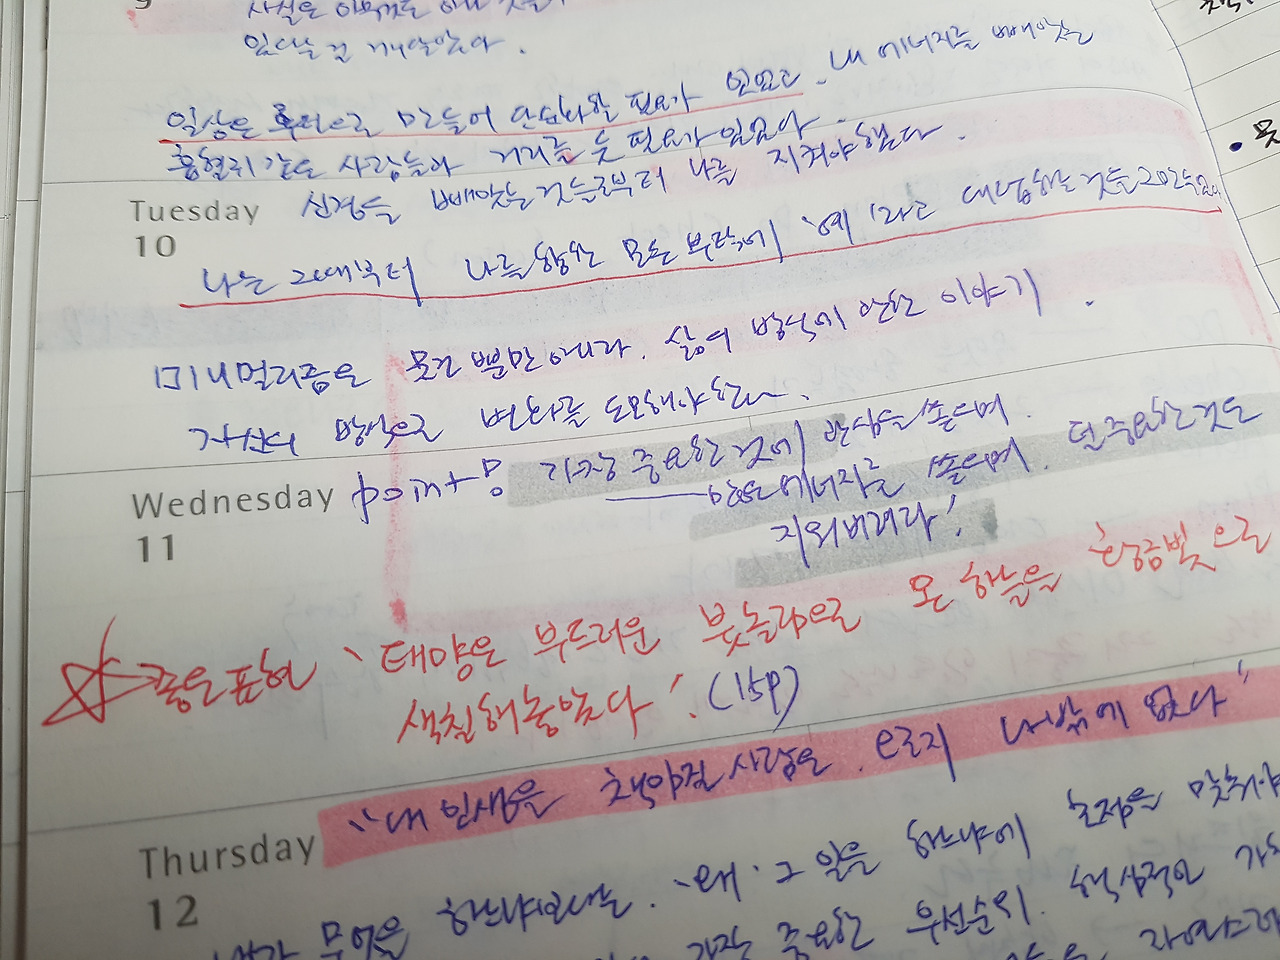 9
사실은 아무것도 아닌 것들
있다는 걸 깨달았다.
일상은 루틴으로 만들어 단순화할 필요가 있었고. 내 에너지를 빼앗는
흡혈귀 같은 사람들과 거리를 둘 필요가 있었다.
신경을 빼앗는 것들로부터 나를 지켜야 했다.
Tuesday
10
나는 그때부터 나를 향한 모든 부탁에 '예'라고 대답하는 것을 그만두었다
미니멀리즘은 물건 뿐만 아니라. 삶의 방식에 관한 이야기.
자신의 방식으로 변화를 도모해야 한다.
Wednesday
11
point는 가장 중요한 것에 관심을 쏟으며.
에너지를 쏟으며. 덜 중요한 것은
지워버려라!
좋은표현 '태양은 부드러운 붓놀림으로 온 하늘을 황금빛으로
색칠해놓았다'. (15p)
"내 인생을 책임질 사람은. 오로지 나밖에 없다"
Thursday
12
무엇을 하느냐보다는. '왜' 그 일을 하느냐에 초점을 맞춰야
가장 중요한 우선순위. 핵심적인 가치